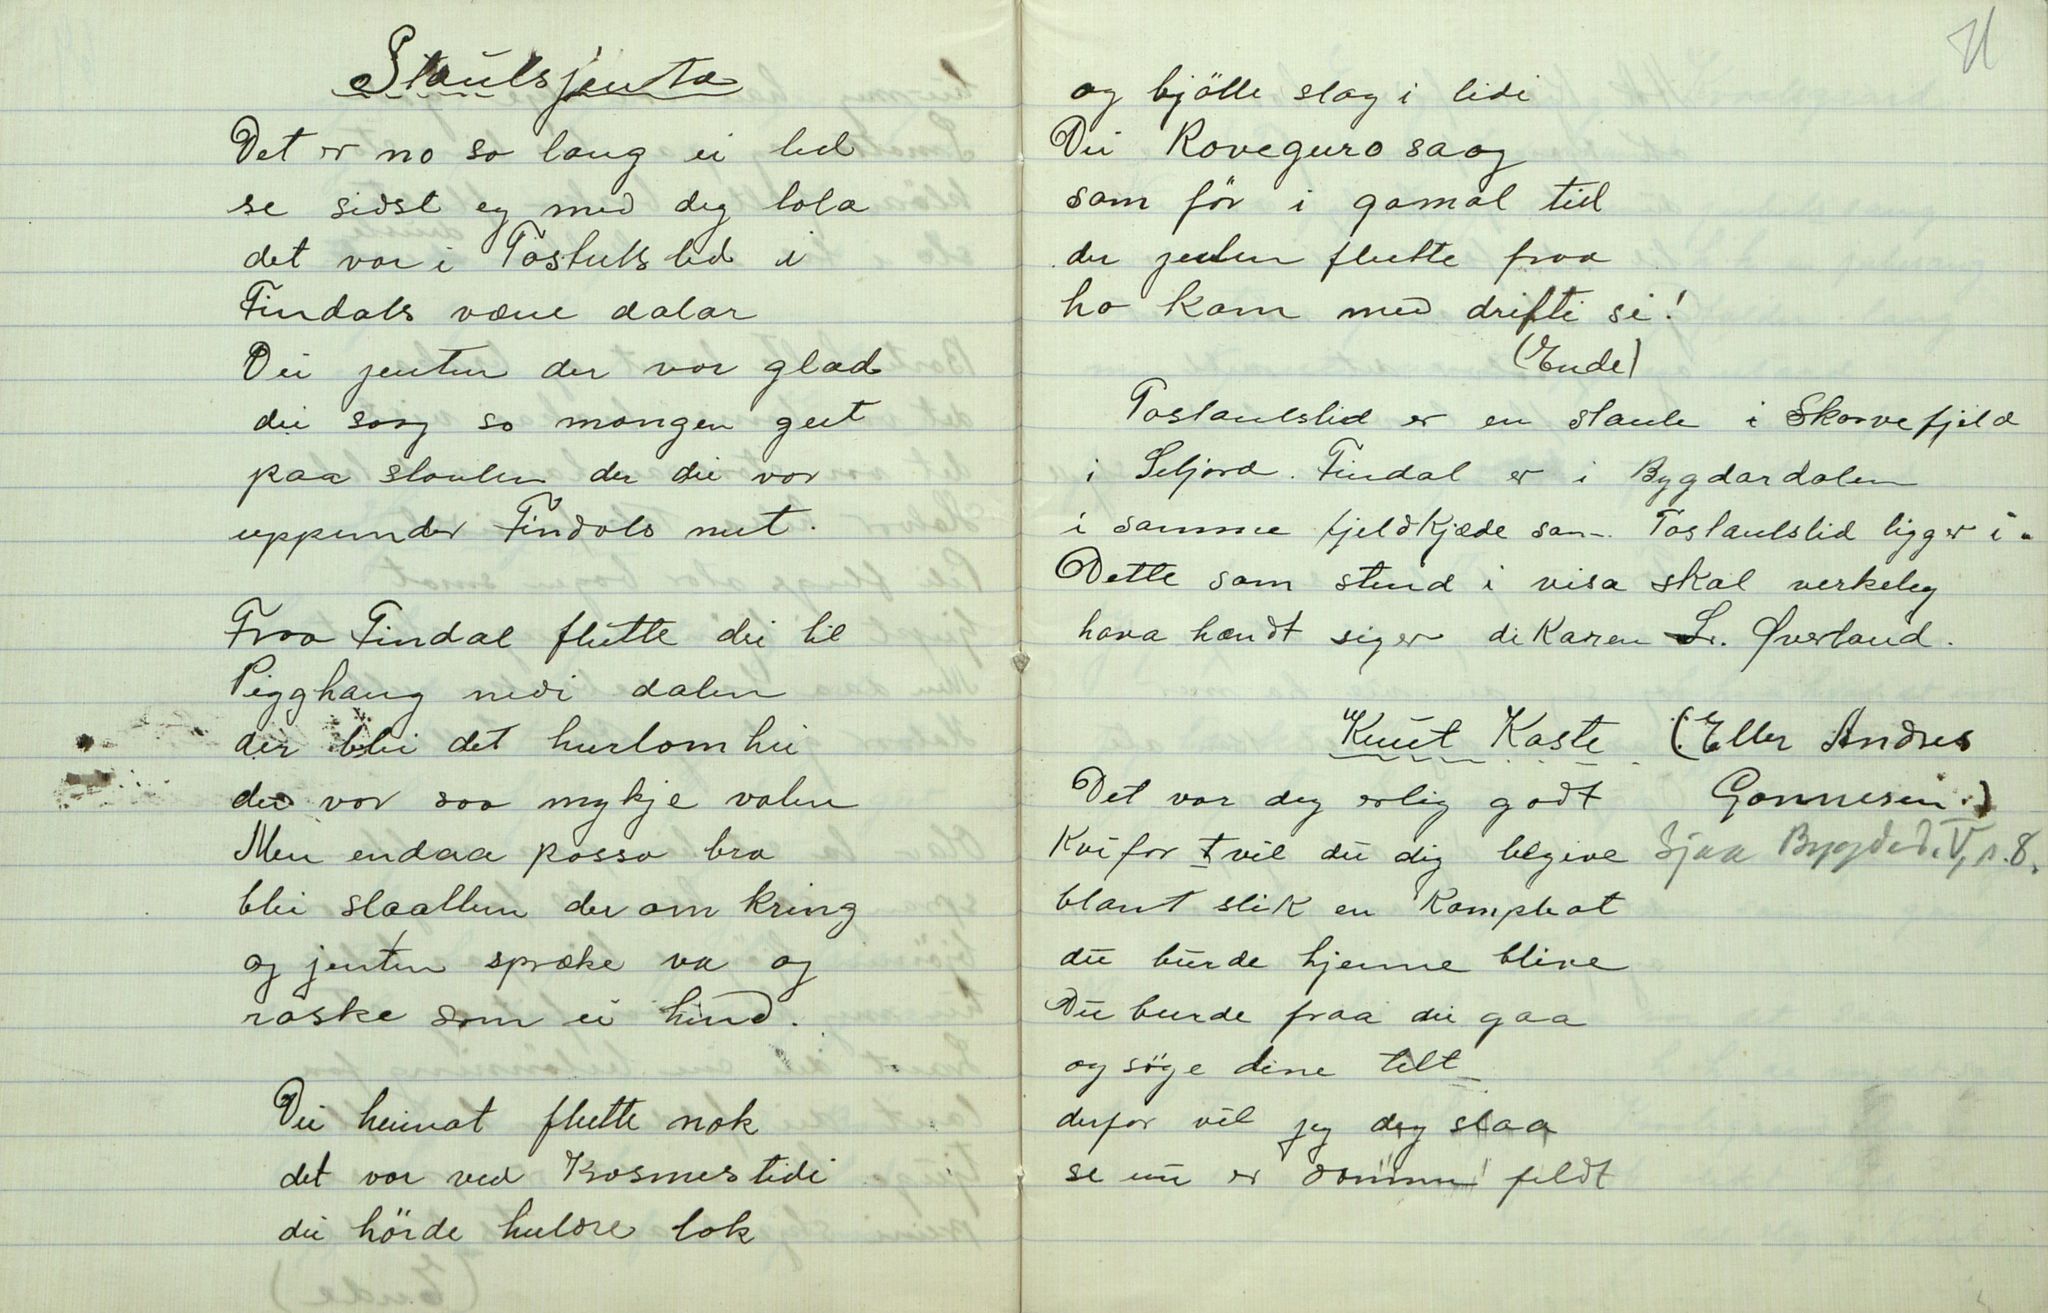 Staulsjenta
Det er no so lang ei tid
se sidst eg med deg tola
det var i Tostulslid i
Findals væne dalar
Dei jenten der var glad
dei song so mangen gut
paa staulen der dei var
uppunder Findals nut.
Fraa Findal flutte dei til
Pigghaug nedi dalen
der blei det hurlomhei
dei var saa mykje valen
Men endaa passa bra
blei slaatten der om kring
og jenten spræke va og
raske som ei hind.
Dei heimat flutte nok
det var ved Krosmestidi
dei hörde huldre lok
11
og bjölle slag i lidi
Dei Roveguro saag
som för i gamal tid
der jenten flutte fraa
ho kom med drifti si!
(Ende)
Tostaulslid er en staule i Skorvefjeld
i Seljord. Findal er i Bygdardalen
i samme fjeldkjæde som Tostaulslid ligger i.
Dette som stend i visa skal verkeleg
hava hændt siger di Karen Sr. Øverland.
Knut Kaste (Eller Andres
Det var deg erlig godt Gonnesen.)
Kvifor vil du dig begive Sjaa Bygded. V, s. 8.
blant slik en Kamphat
du burde hjemme blive
Du burde fraa dei gaa
og söge dine telt
derfor vil jeg deg slaa
se nu er dommen feldt